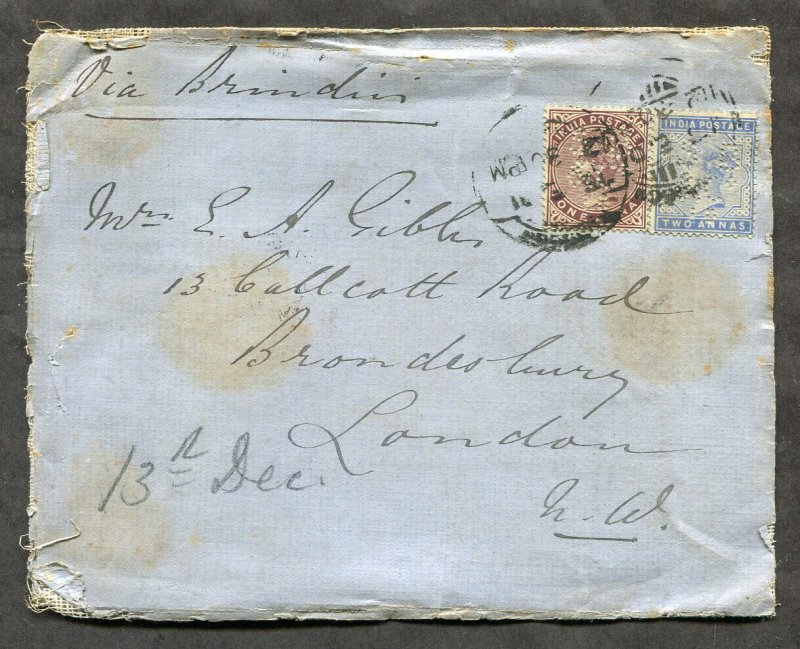 Via Brindisi
INDIA POSTAGE
INDIA POSTAGE
ONE ANNA
TWO ANNAS
PM
Mrs E. A. Gibbs
13 Callcott Road
Brondesbury
London
N. W.
13th Dec.